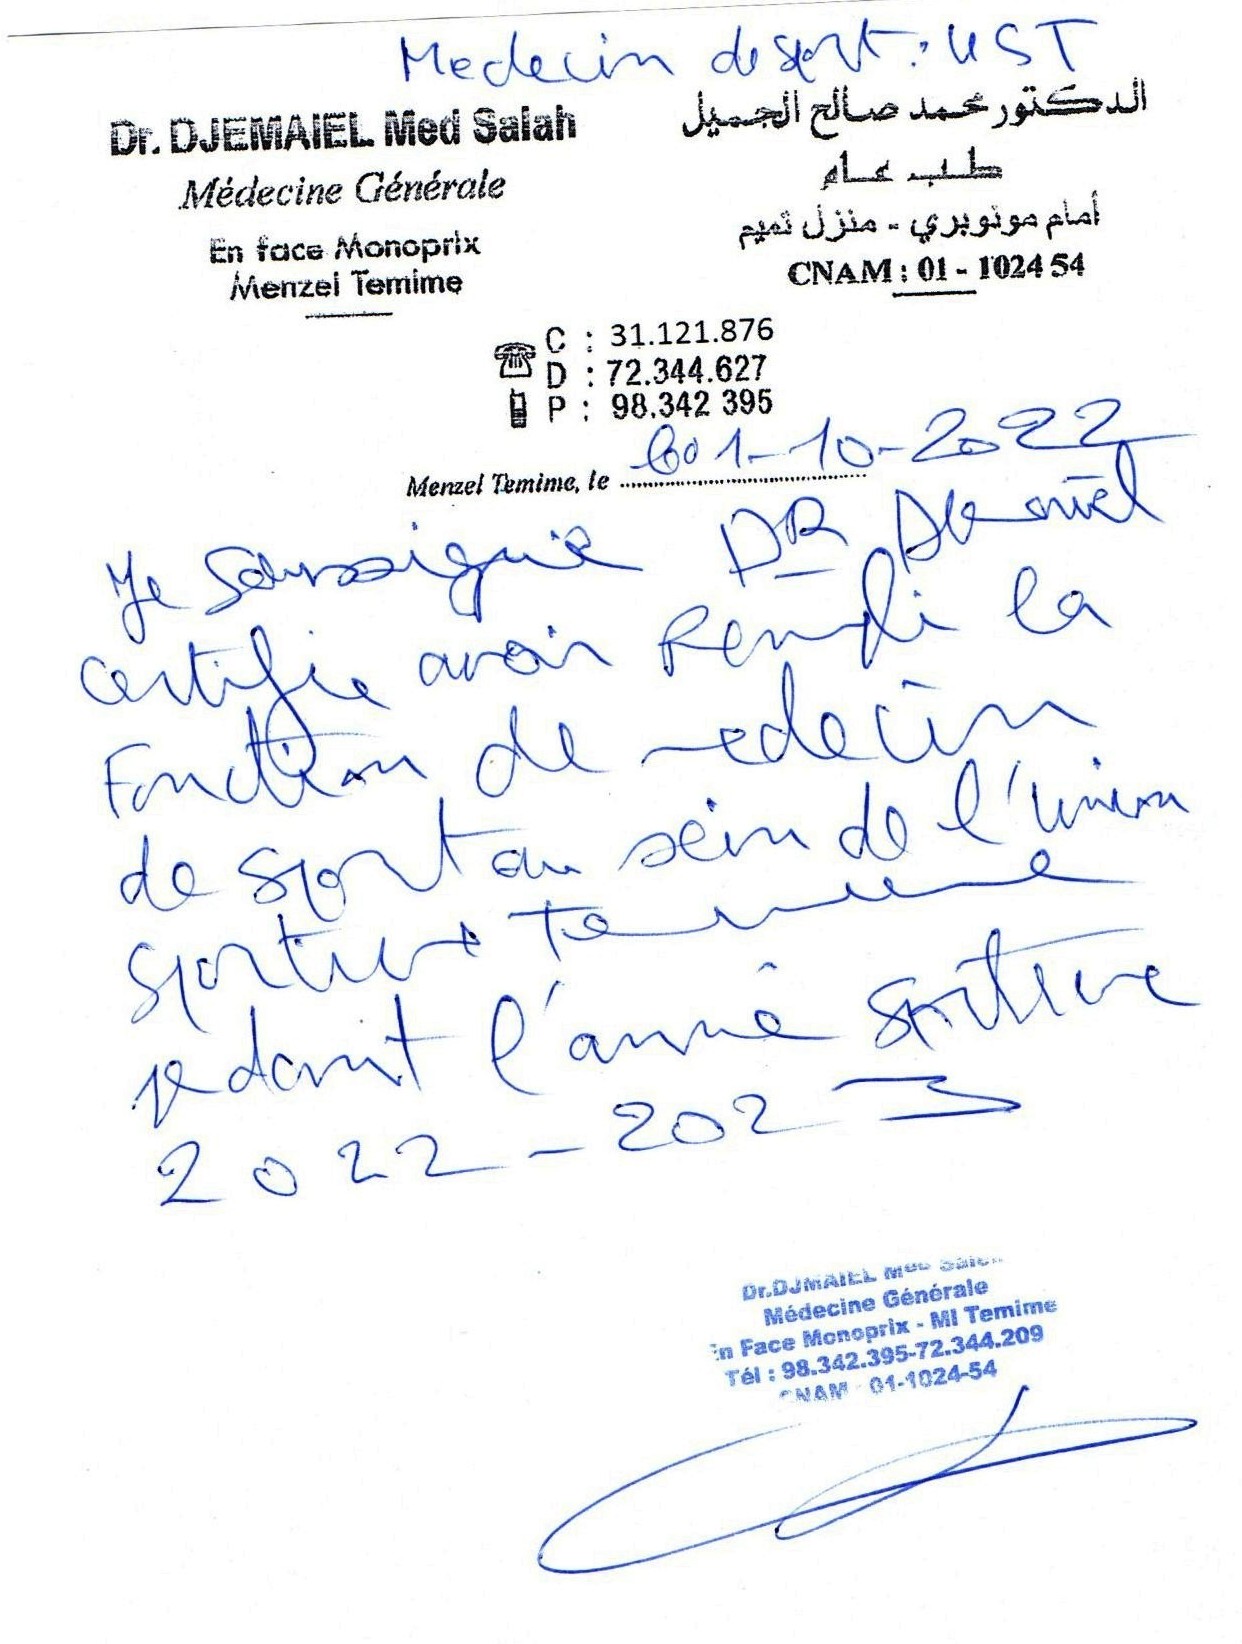 Medecin de sport : UST
Dr. DJEMAIEL Med Salah
Médecine Générale
En face Monoprix
Menzel Temime
الدكتور محمد صالح الجميل
طب عام
أمام مونوبري - منزل تميم
CNAM : 01 - 1024 54
C : 31.121.876
D : 72.344.627
P : 98.342 395
Menzel Temime, le 01-10-2022
Je soussigné DR
certifie avoir rempli la
Fonction de medecin
de sport au sein de l'union
sportive Temime
pedant l'année sportive
2022-2023
Dr.DJMAIEL Med Salah
Médecine Générale
En Face Monoprix - Ml Temime
Tél : 98.342.395-72.344.209
CNAM : 01-1024-54